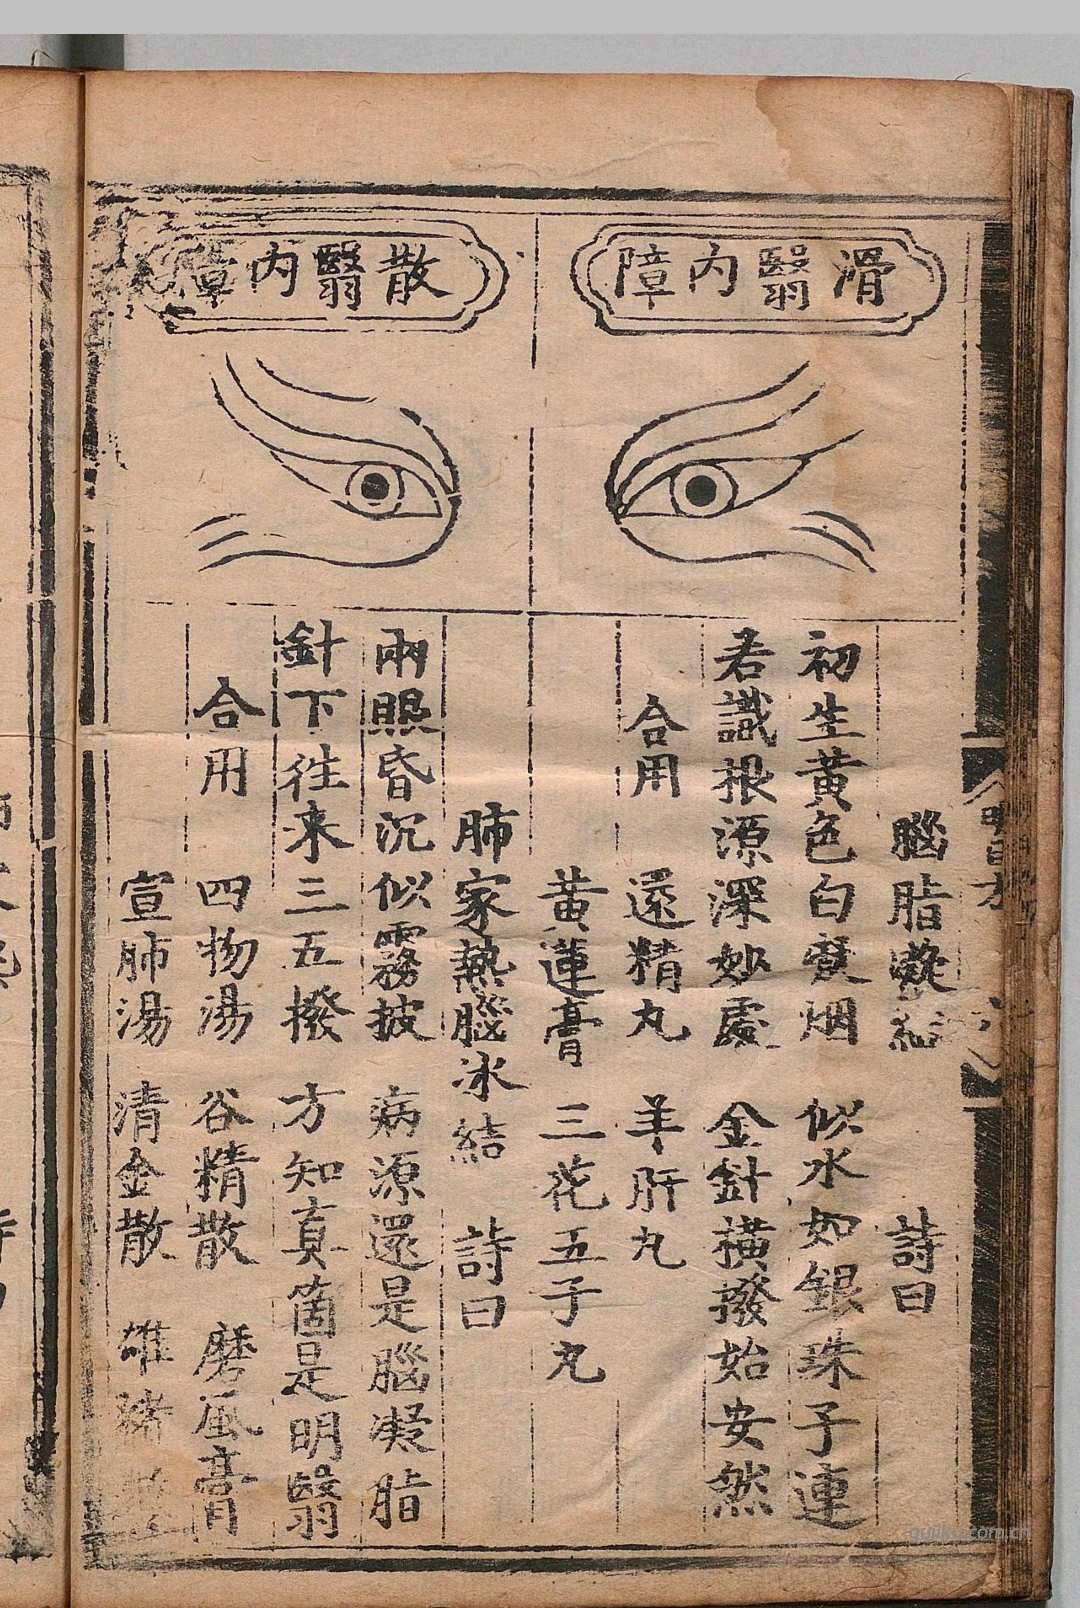 滑翳內障
腦脂凝結 詩曰
初生黃色白凝烟 似水如銀珠子連
若識根源深妙處 金針橫撥始安然
合用 還精丸 羊肝丸
黃蓮膏 三花五子丸
散翳內障
肺家熱腦冰結 詩曰
兩眼昏沉似霧披 病源還是腦凝脂
針下往來三五撥 方知真箇是明翳
合用 四物湯 谷精散 磨風膏
宣肺湯 清金散 雄豬散
gujiku.com.cn